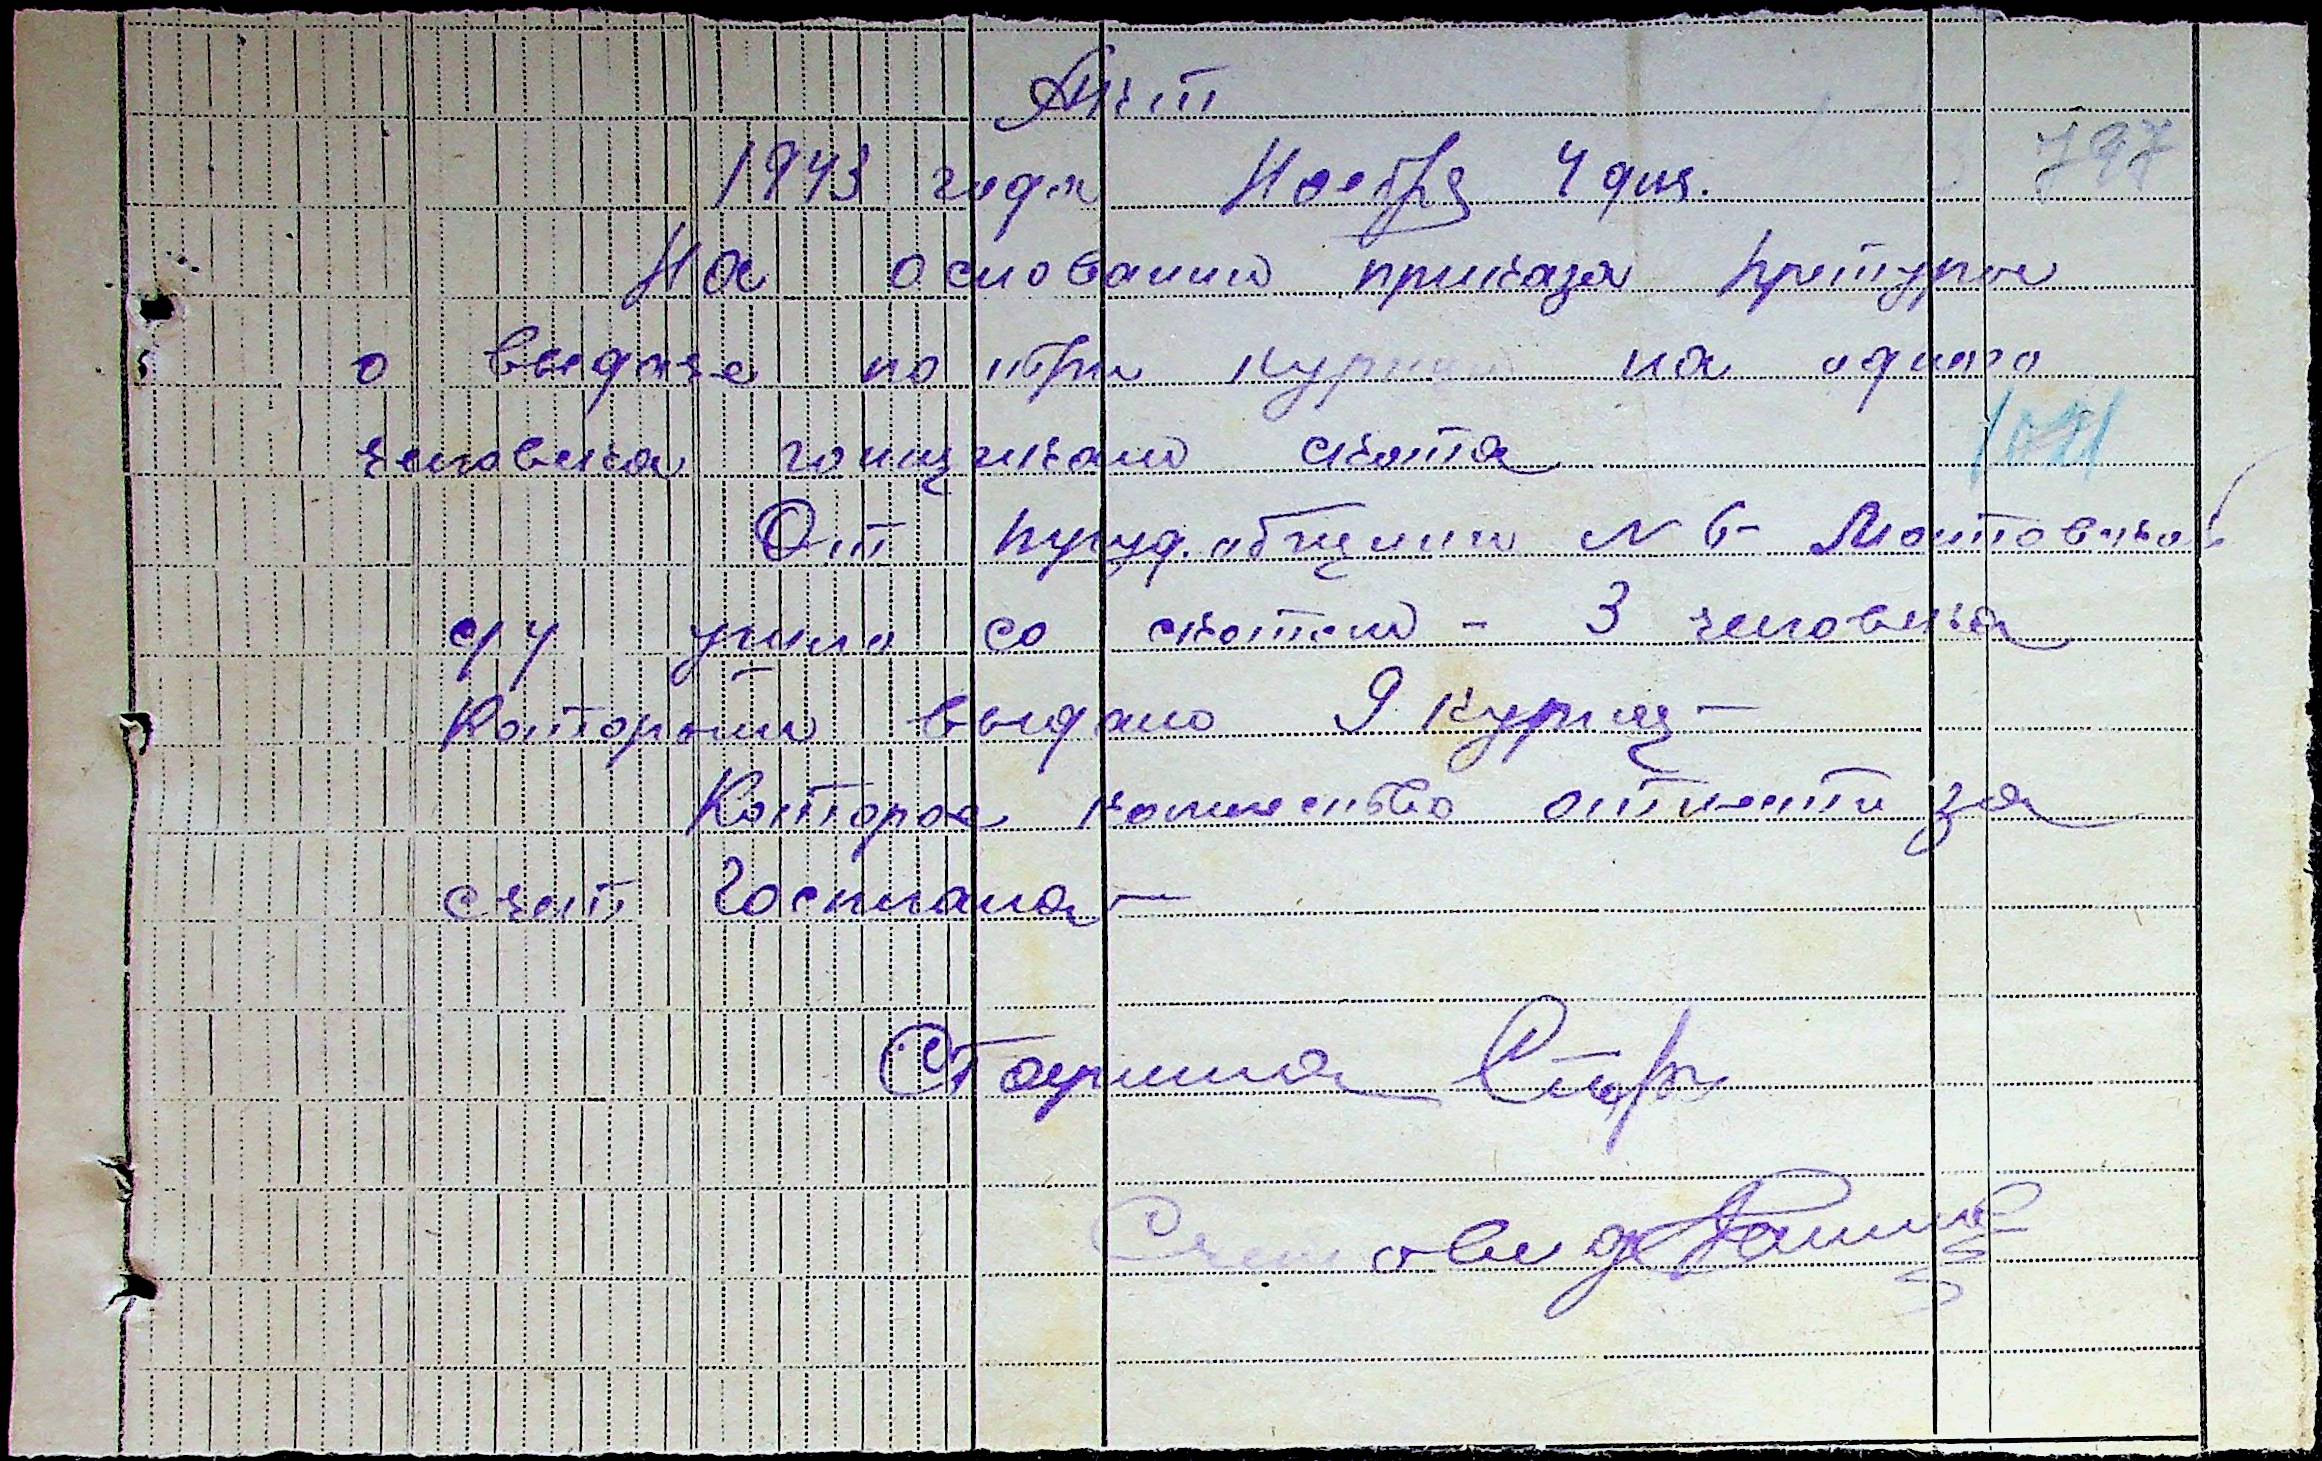 Акт
1943 года Ноября 4 дня. 797
На основании приказа Претуры
о выдаче по три курицы на одного
человека гонщикам скота
1021
От труд. общины N 6 Мостового
с/у ушло со скотом - 3 человека
Которым выдано 9 куриц -
Которое количество отнести за
счет Госплана -
Старшина
Счетовод